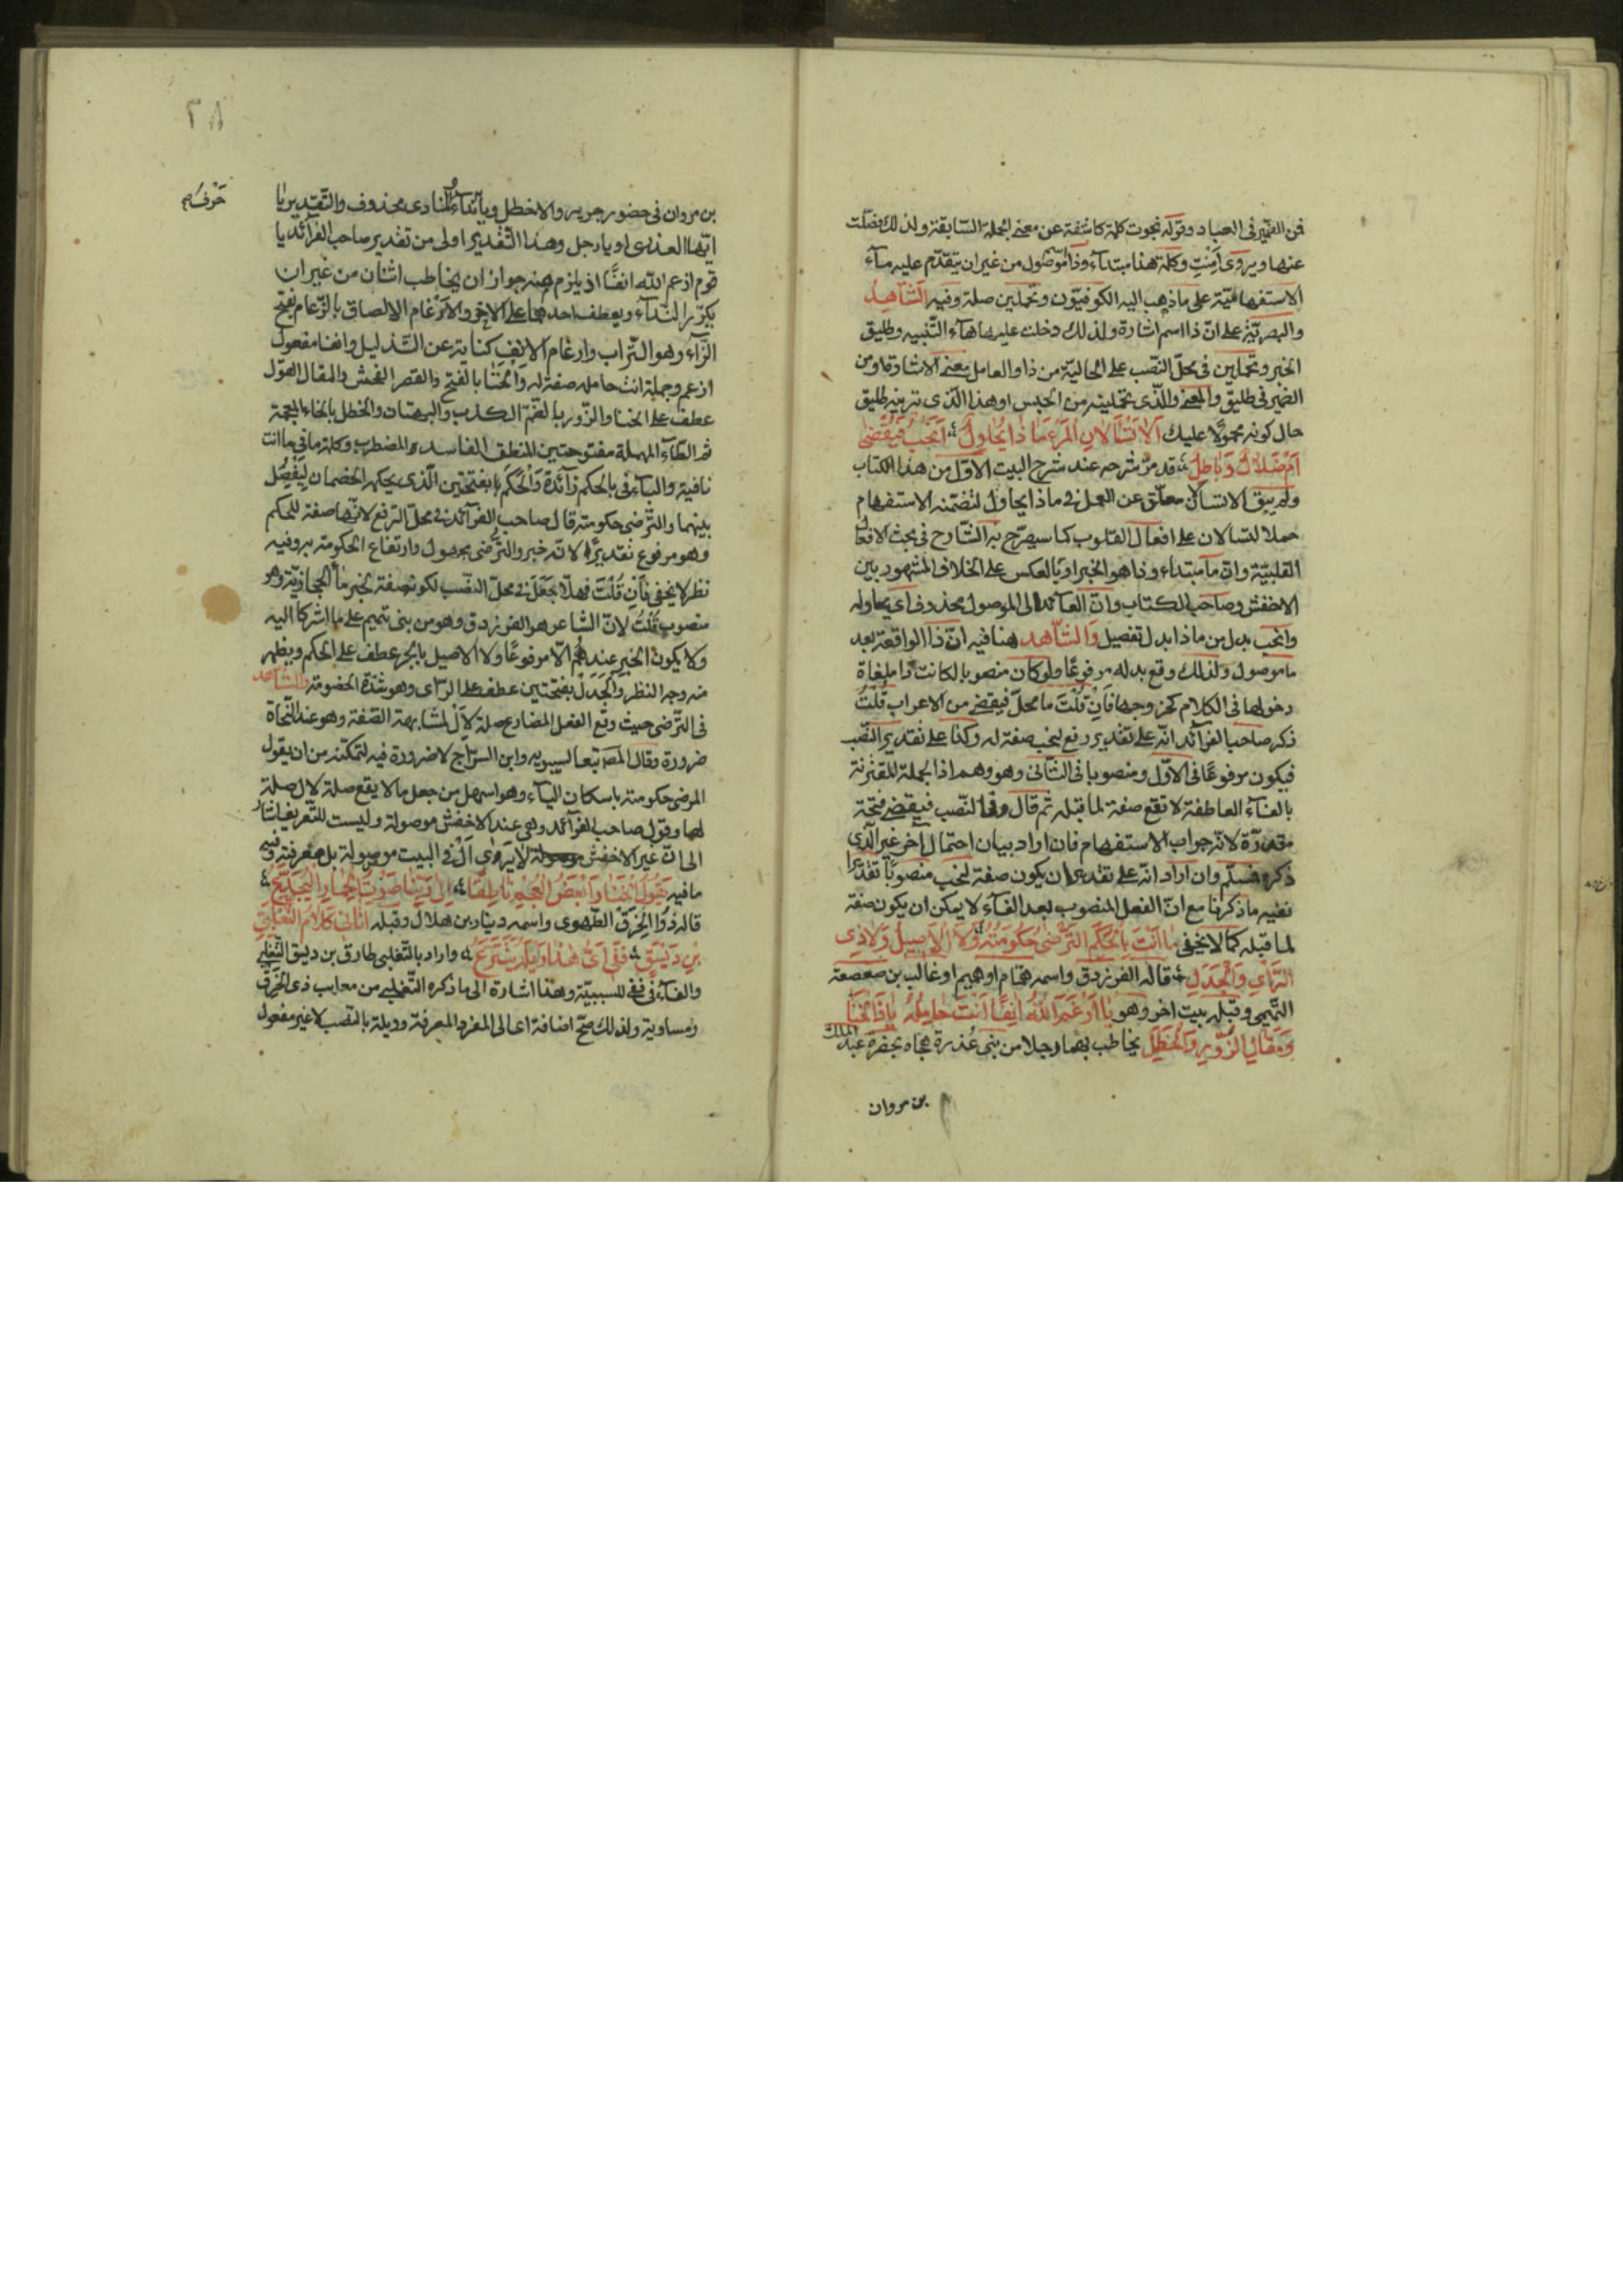 فى الضمير فى العباد وقوله نجوت كلمة كاشفة عن معنى الجملة السّابقة ولذلك فصّلت
عنها ويروى أمنت وكلمة هذا مبتدآء وذا موصول من غير ان يتقدّم عليه مآء
الاستفهاميّة على ما ذهب اليه الكوفيّون وتحملين صلة وفيه الشّاهد
والبصريّة على انّ ذا اسم اشارة ولذلك دخلت عليها هآء التّنبيه وطليق
الخبر وتحملين فى محلّ النّصب على الحاليّة من ذا والعامل معنى الاشارة او من
الضمير فى طليق والمعنى والّذى تحملينه من الحبس او هذا الّذى ترينه طليق
حال كونه محمولا عليك ألا تسألان المرء ماذا يحاول أنحب فيقضى
أم ضلال وباطل قد مرّ شرحه عند شرح البيت الاوّل من هذا الكتاب
ولم يبق الا تسألان معلّق عن العمل فى ماذا يحاول لتضمّنه الاستفهام
حملا لتسالان على افعال القلوب كما سيصرّح به الشّارح فى بحث الافعال
القلبيّة وانّ ما مبتداء وذا هو الخبر او بالعكس على الخلاف المشهور بين
الاخفش وصاحب الكتاب وانّ العآئد الى الموصول محذوف اى يحاوله
وانحب بدل من ماذا بدل تفصيل والشّاهد هنا فيه انّ ذا الواقعة بعد
ما موصول ولذلك وقع بدله مرفوعًا ولو كان منصوبا لكانت ذا ملغاة
دخولها فى الكلام كخروجها فان قلت ما محلّ فيقضى من الاعراب قلت
ذكر صاحب الفرآئد انّه على تقدير رفع لنحب صفة له وكذا على تقدير النّصب
فيكون مرفوعًا فى الاوّل ومنصوبا فى الثّانى وهو وهم اذ الجملة المقترنة
بالفآء العاطفة لا تقع صفة لما قبله ثم قال وفى النّصب فيقضى فتحة
مقدّرة لانّه جواب الاستفهام فان اراد بيان احتمال آخر غير الّذى
ذكره فسلّم وان اراد انّه على تقدير ان يكون صفة لنحب منصوبًا تقديرا
ففيه ما ذكرنا مع انّ الفعل المنصوب بعد الفآء لا يمكن ان يكون صفة
لما قبله كما لا يخفى ما أنت بالحكم الترضى حكومته ولا الأصيل ولا ذى
الرّأى والجدل قاله الفرزدق واسمه همّام او هميم او غالب بن صعصعة
التّميمى وقبله بيت اخر وهو يا أرغم الله أنفًا أنت حامله يا ذا الخنا
ومقال الزّور والخطل يخاطب بهما رجلا من بنى عُذرة هجاه بحضرة عبد الملك
بن مروان
بن مروان فى حضور جرير والاخطل ويا للنّدآء والمنادى محذوف والتّقدير يا
ايّها العذرى او يا رجل وهذا التّقدير اولى من تقدير صاحب الفرآئد يا
قوم ارغم اللّه انفًا اذ يلزم منه جواز ان يخاطب اثنان من غير ان
يكرّر النّدآء ويعطف احدهما على الاخر والارغام الالصاق بالرّغام بفتح
الرّآء وهو التّراب وارغام الانف كناية عن التّذليل وانفا مفعول
ارغم وجملة انت حامله صفة له والخنا بالفتح والقصر الفحش والمقال القول
عطف على الخنا والزّور بالضّم الكذب والبهتان والخطل بالخاء المعجمة
ثم الطّآء المهملة مفتوحتين المنطق الفاسد والمضطرب وكلمة ما فى ما انت
نافية والبآء فى بالحكم زآئدة والحكم بفتحتين الّذى يحكمه الخصمان ليفصل
بينهما والتّرضى حكومته قال صاحب الفرآئد فى محلّ الرّفع لانّها صفة للحكم
وهو مرفوع تقديرًا لانّه خبر والتّرضى مجهول وارتفاع الحكومة به وفيه
نظر لا يخفى فان قلت فهلّا يجعل فى محلّ النّصب لكونه صفة لخبر ما الحجازيّة وهو
منصوب قلت لانّ الشاعر هو الفرزدق وهو من بنى تميم على ما اشركا اليه
ولا يكون الخبر عندهم الّا مرفوعًا ولا الاصيل بالجر عطف على الحكم ويظهر
منه وجه النظر والجدل بفتحتين عطف على الرّاى وهو شدّة الخصومة والشّاهد
فى التّرضى حيث وقع الفعل المضارع صلة لأل لمشابهة الصّفة وهو عند النّحاة
ضرورة وقال المص تبعا لسيبويه وابن السرّاج لا ضرورة فيه لتمكّنه من ان يقول
المرضى حكومته باسكان اليآء وهو اسهل من جعل ما لا يقع صلة لال صلة
لها وقول صاحب الفرآئد وهى عند الاخفش موصولة وليست للتّعريف اشار
الى انّ غير الاخفش لا يرى ال فى البيت موصولة بل معرفة وفيه
ما فيه يقول الخنا وأبغض العجم ناطقًا الى ربّنا صوت الحمار اليجدّع
قاله ذو الخرق الطّهوى واسمه دينار بن هلال وقبله أتانى كلام الثّعلبىّ
بن ديسق ففى أىّ هذا ويله يتترّع واراد بالتّغلبى طارق بن ديسق الثّعلبى
والفآء فى ففى للسببيّة وهذا اشارة الى ما ذكره التّغلبى من معايب ذى الخرق
ومساويه ولذلك صحّ اضافة اى الى المفرد المعرفة وويله بالنّصب لا غير مفعول